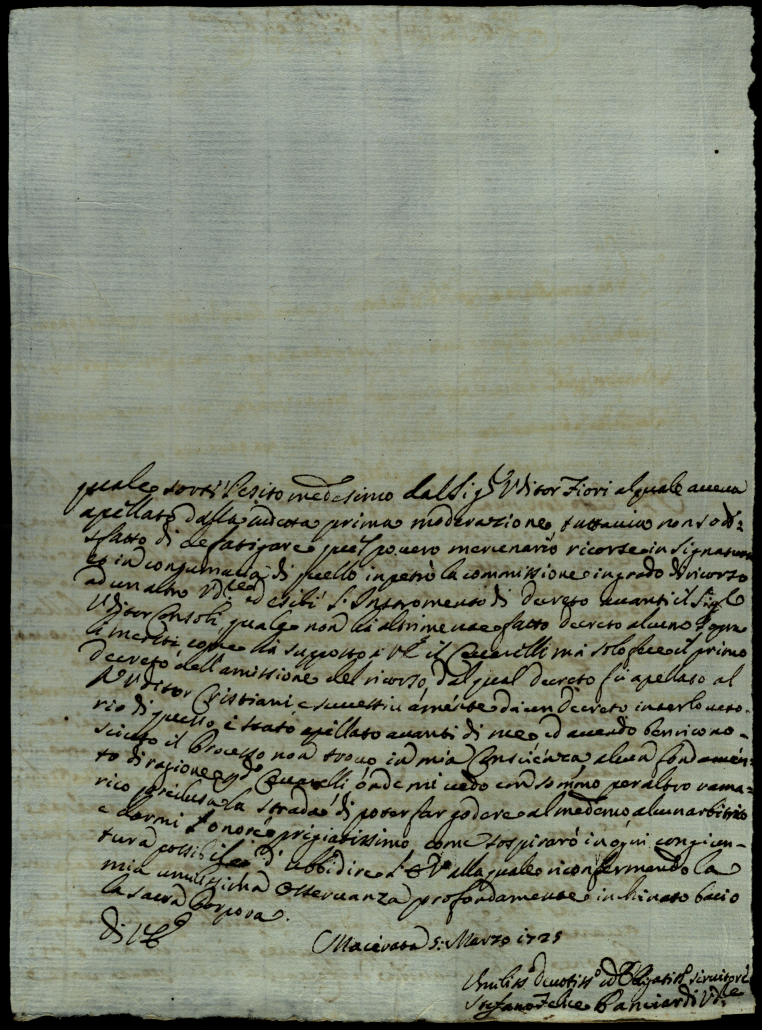 quale sortì l'esito medesimo dal Sig.r Uditor Fiori al quale aveva
apellato dalla sudetta prima moderazione, tuttavia non sodi=
sfatto di defatigare quel povero mercenario ricorse in Signatura
et in consumacia di quello inpetrò la commissione in grado di ricorso
ad un altro ed esibì l'Instromento di decreto avanti il Sig.r
Uditor Consoli, quale non hà altrimenti fatto decreto alcuno sopra
li meriti, come hà supposto à V.E. il Cecarelli mà solo fece il primo
decreto dell'amissione del ricorso, dal qual decreto fù apellato al
S.r Uditor Cristiani, e successivamente da un decreto interlocuto=
rio di questo, è stato apellato avanti di me, ed avendo ben ricono=
sciuto il Processo non trovo in mia Conscienza alcun fondamen=
to di ragione p. do Cecarelli, onde mi vedo con sommo per altro rama=
rico preclusa la strada di poter far godere al medemo alcun arbitrio
e darmi l'onore pregiatissimo, come sospirarò in ogni congiun=
tura possibile d'ubbidire l'E.V. alla quale riconfermando la
mia umilissima osservanza profondamente inchinato bacio
la sacra Porpora.
di V.E.
Macerata 5: Marzo 1725
Umiliss.o Devotiss.o ed Obligatiss.o Servitore
Stefano Felice